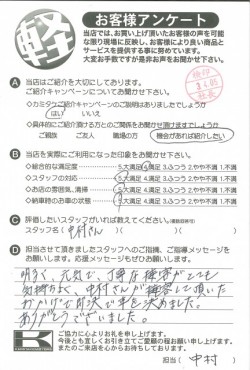 軽
お客様アンケート
当店では、お買い上げ頂いたお客様の声を可能
な限り現場に反映し、お客様により良い商品と
サービスを提供する事に努めています。
大変お手数ですが是非お声をお聞かせ下さい。
A 当店はご紹介を大切にしてあります。
ご紹介キャンペーンについてお聞かせ下さい。
◇カミタケご紹介キャンペーンのご説明はありましたでしょうか
はい いいえ
◇具体的にご紹介頂ける方とのご関係をお聞かせ頂けますでしょうか
ご親族 ご友人 職場の方 機会があれば紹介したい
B 当店を実際にご利用になった印象をお聞かせ下さい。
◇総合的な満足度 5.大満足 4.満足 3.ふつう 2.やや不満 1.不満
◇スタッフの対応 5.大満足 4.満足 3.ふつう 2.やや不満 1.不満
◇お店の雰囲気、清掃 5.大満足 4.満足 3.ふつう 2.やや不満 1.不満
◇納車時のお車の状態 5.大満足 4.満足 3.ふつう 2.やや不満 1.不満
C 評価したいスタッフがいれば教えてください。(複数回答可)
スタッフ名( 中村さん )
D 担当させて頂きましたスタッフへのご指摘、ご指導メッセージを
お願いします。応援メッセージもぜひお願いします。
明るく、元気で、丁寧な接客がとても
気持ちよく、中村さんが接客して頂いた
おかげで即決で車を決めました。
ありがとうございました。
K
ご協力に心よりお礼を申し上げます。
今後とも宜しくお引き立てご愛顧の程お願い申し上げます。
またのご来店を心からお待ちしております。
担当( 中村 )